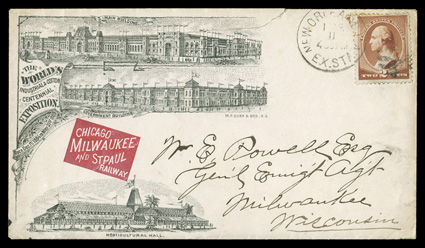 MAIN BUILDING
THE
WORLD'S
INDUSTRIAL & COTTON
CENTENNIAL
EXPOSITION.
GOVERNMENT BUILDING
CHICAGO
MILWAUKEE
AND ST. PAUL
RAILWAY
HORTICULTURAL HALL.
NEW ORLEANS
EX. STA.
TWO CENTS
W. E. Powell Esq
Gen'l Emigt Agt
Milwaukee
Wisconsin